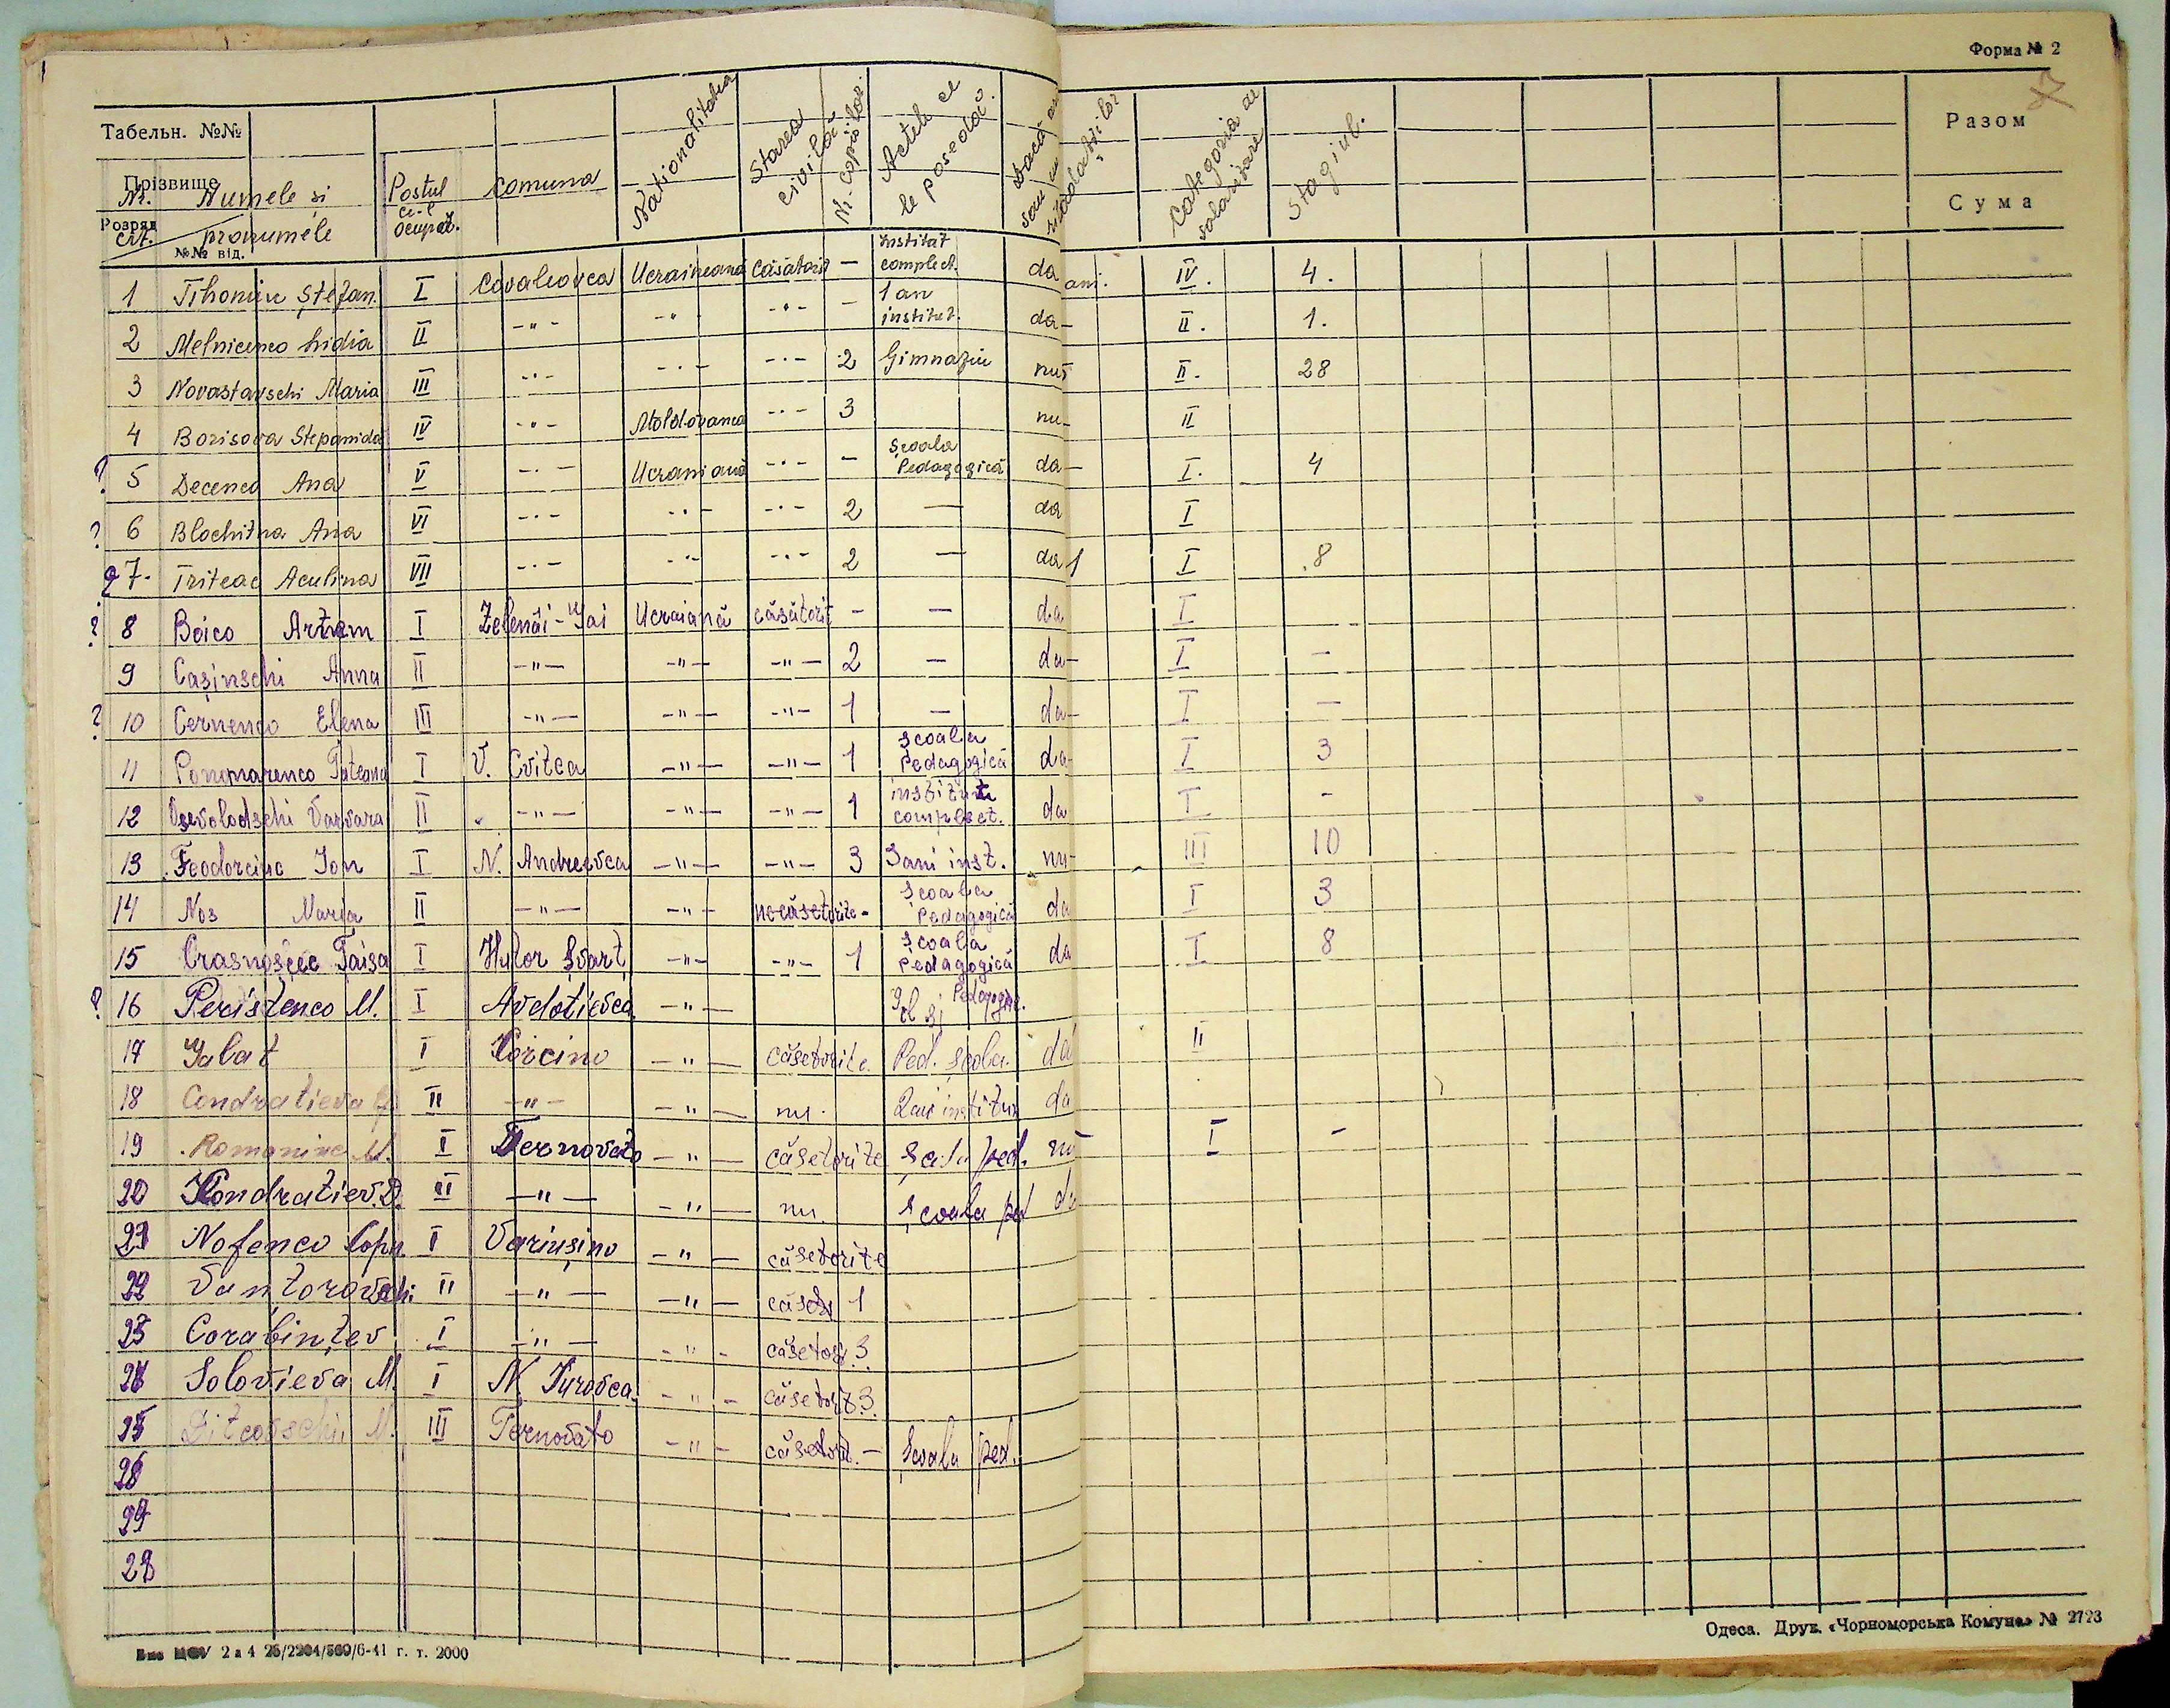 Форма № 2
Табельн. №№
Прізвище
Розряд
№№ від.
Nr. crt.
Numele și pronumele
Postul ce-l ocupă.
Comuna
Nationalitatea
Starea civilă
Nr. copiilor
Actele ce le posedă
Dacă au sau nu
Categoria de salarizare
Stagiul.
Разом
Сума
1 Tihoniuc Ștefan. I Covaleovca Ucraineană căsătorit — institut complect. da ani. IV. 4.
2 Melnicenco Lidia II -"- -"- -"- — 1 an institut. da — II. 1.
3 Novastavschi Maria III -"- -"- -"- 2 Gimnaziu nu II. 28
4 Borisova Stepanida IV -"- Moldovanca -"- 3 nu II
? 5 Decenco Ana V -"- Ucraniană -"- — Școala Pedagogică da — I. 4
? 6 Blochitna Ana VI -"- -"- -"- 2 — da I
? 7. Triteac Aculina VII -"- -"- -"- 2 — da 1 I .8
? 8 Boico Artem I Zelenâi-Gai Ucraiană căsătorit - — da I
9 Cașinschi Anna II -"- -"- -"- 2 — da — I —
? 10 Cernenco Elena III -"- -"- -"- 1 — da — I —
11 Ponomarenco Tateana I V. Cvitca -"- -"- 1 școala Pedagogică da I 3
12 Vsevolodschi Varvara II -"- -"- -"- 1 institutu complect. da I -
13 Feodorciuc Ion I N. Andreevca -"- -"- 3 3 ani inst. nu III 10
14 Nos Maria II -"- -"- necăsetorite - școala Pedagogică da I 3
15 Crasnoșcec Taisa I Hutor Șvarț -"- -"- 1 școala Pedagogică da I 8
? 16 Peristenco M. I Avdotievca -"- Pedagogic.
17 Galat I Corcino -"- căsetorite Ped. școla. da II
18 Condratieva II -"- -"- nu. 2 ani institut da
19 Romaniuc M. I Ternovato -"- căsetorite Școla ped. nu I -
20 Kondratiev. D. II -"- -"- nu. școala ped da
21 Nofenco I Variușino -"- căsetorite
22 Vanțorovschi II -"- -"- 1
23 Corabințev I -"- -"- 3
24 Solovieva M. I N. Iurovca -"- 3
25 Ditcovschi M. III Ternovato -"- — Școala ped.
26
27
28
2 а 4 25/2204/560/6-41 г. т. 2000
Одеса. Друк. «Чорноморська Комуна» № 2723